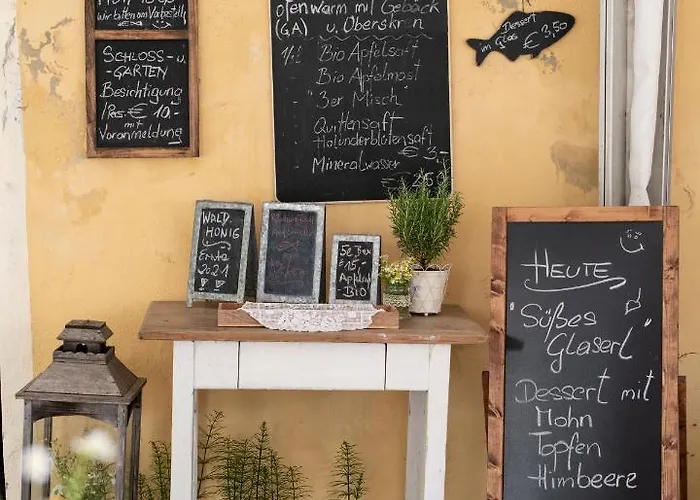 wir bitten um Vorbestellg
SCHLOSS- u.
-GARTEN
Besichtigung
/Pers. € 10,-
mit
Voranmeldung
ofenwarm mit Gebäck
(GA) u. Oberskren
Bio Apfelsaft
Bio Apfelmost
"3er Misch"
Quittensaft
Holunderblütensaft
€ 3,-
Mineralwasser
Dessert
im Glas € 3,50
WALD
HONIG
Ernte
2021
5L Box
€ 15,-
Apfelsaft
BIO
HEUTE
"Süßes
Glaserl"
Dessert mit
Mohn
Topfen
Himbeere